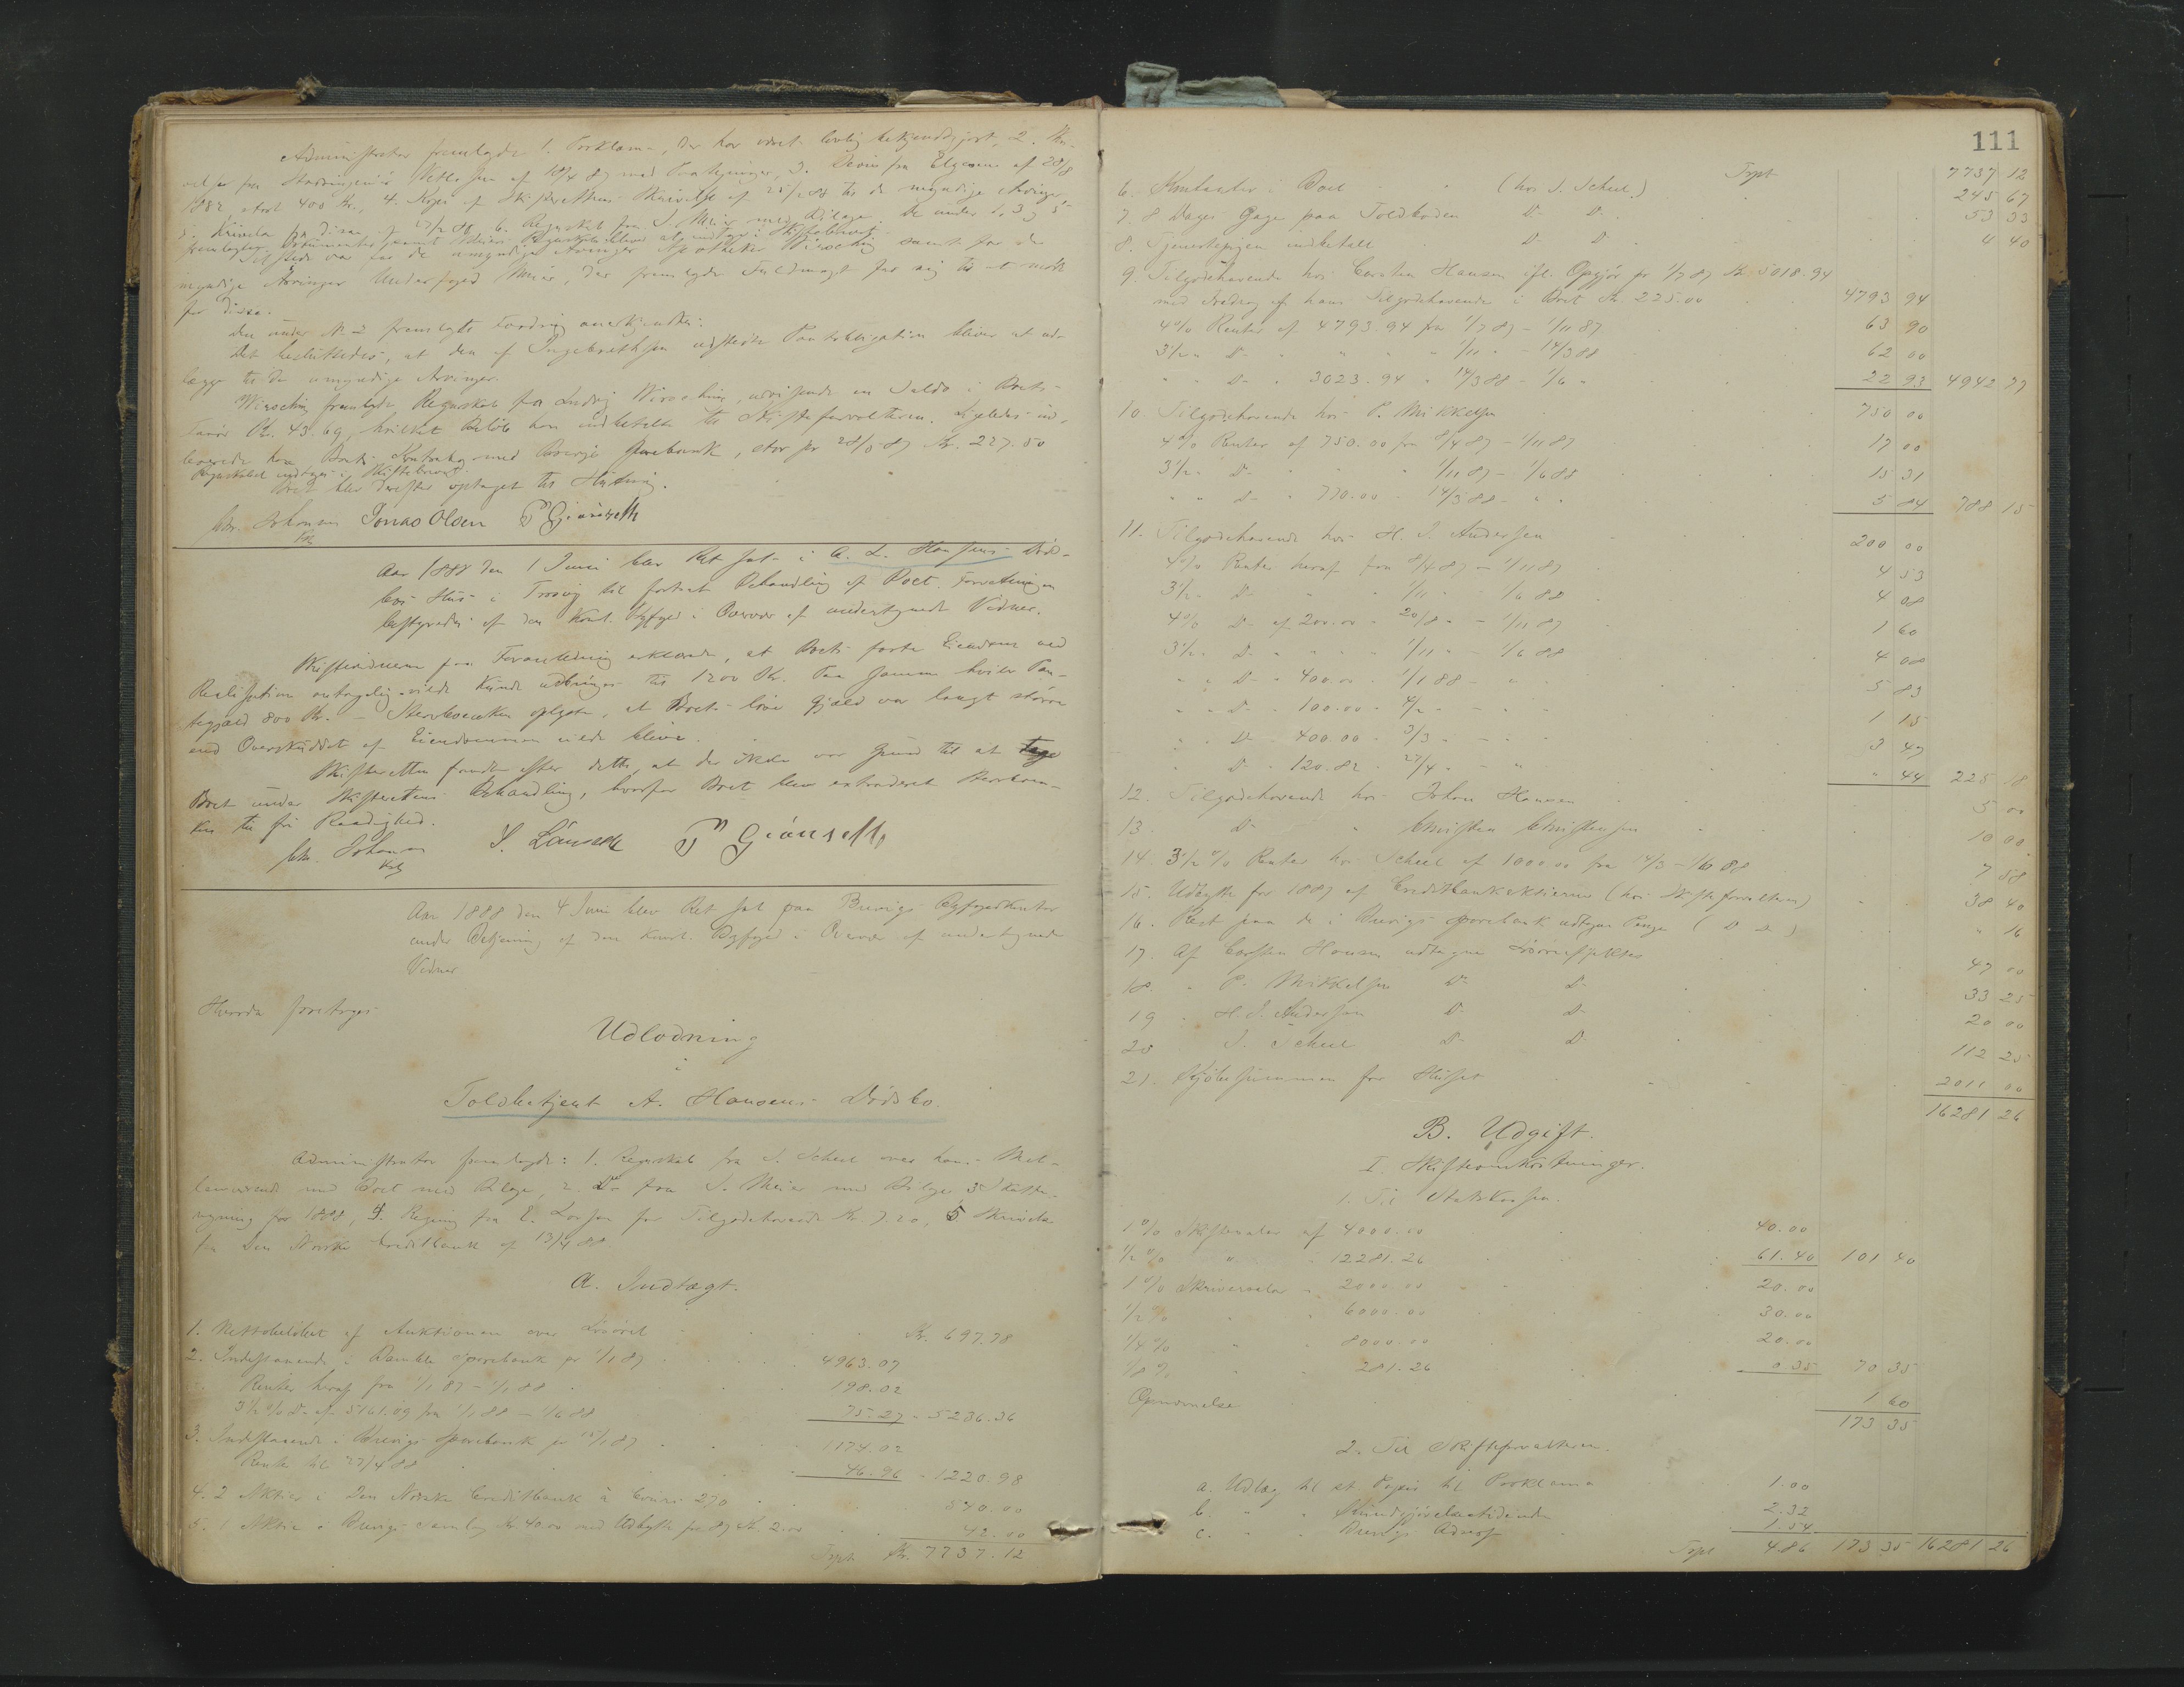 Administrator fremlagde 1. Proklama, der har været lovlig bekjendtgjort, 2. Skri-
velse fra
1882, stort 400 Kr., 4. Kopi af Skifterettens Skrivelse af 25/2 88 til de myndige Arvinger
6. Regnskab fra J. Meier med Bilage. De under 1, 3 og 5
Tilstede var for de umyndige Arvinger Apotheker Wirsching samt for de
myndige Arvinger Underfoged Meier, der fremlagde Fuldmagt for sig til at møde
for disse.
Den under No 2 fremlagte Fordring anerkjendtes.
Det besluttedes, at den af Ingebrethsen udstedte Pantobligation bliver at ud-
lægge til de umyndige Arvinger.
Wirsching fremlagde Regnskab fra Ludvig Wirsching, udvisende en Saldo i Boets
Favør Kr. 43.69, hvilket Beløb han indbetalte til Skifteforvalteren. Ligeledes ind-
leverede han Boets Kontrabog med Brevigs Sparebank, stor pr 28/5 87 Kr. 227.50
Regnskabet indtages i Skiftebrevet.
Boet blev derefter optaget til Slutning.
Chr. Johnsen Jonas Olsen P Gjønseth
Aar 1888 den 1 Juni blev Ret sat i C. L. Hansens Døds-
bos Hus i Trosvig til fortsat Behandling af Boet. Forretningen
bestyredes af den Konst. Byfoged i Overvær af undertegnede Vidner.
Skiftevidnerne paa Foranledning erklærede, at Boets faste Eiendom ved
Realisation antagelig vilde kunde udbringes til 1200 Kr. Paa samme hviler Pan-
tegjæld 800 Kr. - Sterboenken oplyste, at Boets løse Gjæld var langt større
end Overskuddet af Eiendommen vilde blive.
Skifteretten fandt efter dette, at der ikke var Grund til at tage
Boet under Skifterettens Behandling, hvorfor Boet blev extraderet Sterboen-
ken til fri Raadighed.
Chr. Johnsen P Gjønseth
Aar 1888 den 4 Juni blev Ret sat paa Brevigs Byfogedkontor
under Betjening af den Konst. Byfoged i Overvær af undertegnede
Vidner
Hvorda foretoges
Udlodning
i
Toldbetjent A. Hansens Dødsbo.
Administrator fremlagde: 1. Regnskab fra J. Scheel over hans Mel-
lemværende med Boet med Bilage, 2. Do fra J. Meier med Bilage, 3 Skatte-
ligning for 1888, 4. Regning fra E. Larsen for Tilgodehavende Kr 7.20, 5 Skrivelse
fra Den Norske Creditbank af 13/4 88
A. Indtægt.
1. Nettobeløbet af Auktionen over Løsøret Kr. 697.78
2. Indestaaende i Bamble Sparebank pr 1/1 87 4963.07
Renter heraf fra 1/1 87 - 1/1 88 198.02
3 1/2 % Do af 5161.09 fra 1/1 88 - 1/6 88 75.27 - 5236.36
3. Indestaaende i Brevigs Sparebank pr 15/1 87 1174.02
Renter til 27/4 88 46.96 - 1220.98
4. 2 Aktier i Den Norske Creditbank à Cours 270 540.00
5. 1 Aktie i Brevigs Samlag Kr 40.00 med Udbytte for 87 Kr 2.00 42.00
Trpt Kr. 7737.12
111
Trpt 7737 12
6. Kontanter i Boet (hos J. Scheel) 245 67
7. 8 Dages Gage paa Toldboden Do Do 53 33
8. Tjenestepigen indbetalt Do Do 4 40
9. Tilgodehavende hos Carsten Hansen ifl. Opgjør pr 1/7 87 Kr 5018.94
med Fradrag af hans Tilgodehavende i Boet Kr. 225.00 4793 94
4 % Renter af 4793.94 fra 1/7 87 - 1/11 87 63 90
3 1/2 " Do " " " 1/11 " - 14/3 88 62 00
" " Do " 3023.94 " 14/3 88 - 1/6 " 22 93 4942 77
10. Tilgodehavende hos P. Mikkelsen 750 00
4 % Renter af 750.00 fra 8/4 87 - 1/11 87 17 00
3 1/2 " Do " " " 1/11 87 - 1/6 88 15 31
" " Do " 770.00 " 14/3 88 - " " 5 84 788 15
11. Tilgodehavende hos H. J. Andersen 200 00
4 % Renter heraf fra 8/4 87 - 1/11 87 4 53
3 1/2 " Do " " 1/11 " - 1/6 88 4 08
4 % Do af 200.00 " 20/8 " - 1/11 87 1 60
3 1/2 " Do " " " 1/11 " - 1/6 88 4 08
" " Do " 400.00 " 1/1 88 - " " 5 83
" " Do " 100.00 " 4/2 " - " " 1 15
" " Do " 400.00 " 3/3 " - " " 3 47
" Do " 120.82 " 27/4 " - " " " 44 225 18
12. Tilgodehavende hos Johan Hansen 5 00
13. Do " Christen Christensen 10 00
14. 3 1/2 % Renter hos Scheel af 1000.00 fra 14/3 - 1/6 88 7 58
15. Udbytte for 1887 af Creditbankaktierne (hos Skifteforvalteren) 38 40
16. Rest paa de i Brevigs Sparebank udtagne Penge (Do Do) " 16
17. Af Carsten Hansen udtagne Løsøreeffekter 47 00
18. " P. Mikkelsen Do Do 33 25
19 " H. J. Andersen Do Do 20 00
20 " J. Scheel Do Do 112 25
21. Kjøbesummen for Huset 2011 00
16281 26
B. Udgift.
I. Skifteomkostninger.
1. Til Statskassen.
1 % Skiftesalær af 4000.00 40.00
1/2 % " " 12281.26 61.40 101 40
1 % Skriversalær " 2000.00 20.00
1/2 % " " 6000.00 30.00
1/4 % " " 8000.00 20.00
1/8 % " " 281.26 0 35 70 35
Opnævnelse 1 60
173 35
2. Til Skifteforvalteren.
a. Udlæg til st. Papir til Proklama 1.00
b. " " Kundgjørelsestidende 2.32
c. " " Brevigs Adresse 1.54
Trpt 4.86 173 35 16281 26